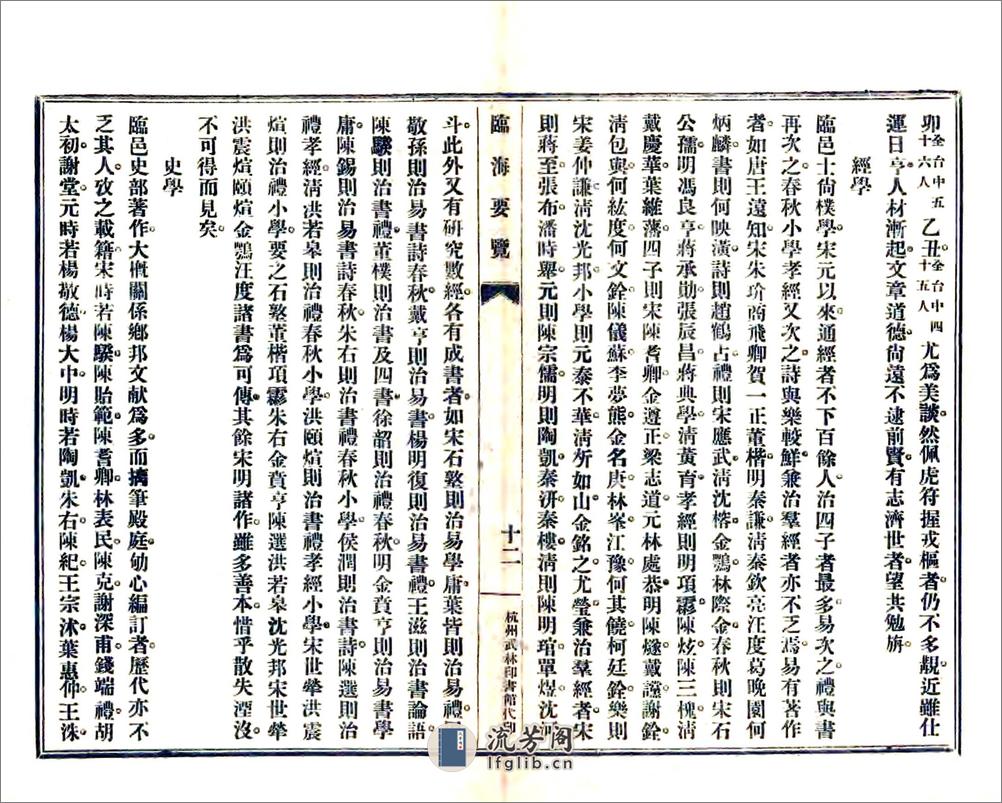 卯全台中五十六人乙丑全台中四十五人尤爲美談然佩虎符握戎樞者仍不多覯近雖仕
運日亨人材漸起文章道德尙遠不逮前賢有志濟世者望共勉旃
經學
臨邑士尙樸學宋元以來通經者不下百餘人治四子者最多易次之禮與書
再次之春秋小學孝經又次之詩與樂較鮮兼治羣經者亦不乏焉易有著作
者如唐王遠知宋朱玠商飛卿賀一正董楷明秦謙淸秦欽亮汪度葛晚園何
炳麟書則何映潢詩則趙鶴占禮則宋應武淸沈榕金鶚林際金春秋則宋石
公孺明馮良亨蔣承勛張辰昌蔣典學淸黃育孝經則明項霦陳炫陳三槐淸
戴慶華葉維藩四子則宋陳耆卿金遵正梁志道元林處恭明陳燧戴讜謝銓
淸包與何紘度何文銓陳儀蘇李夢熊金名庚林峯江豫何其饒柯廷銓樂則
宋姜仲謙淸沈光邦小學則元泰不華淸炘如山金銘之尤瑩兼治羣經者宋
則蔣至張布潘時舉元則陳宗儒明則陶凱秦洴秦樓淸則陳明琯單煜沈河
臨海要覽
十二
杭州武林印書館代印
斗此外又有硏究數經各有成書者如宋石𡼖則治易學庸葉皆則治易禮
敬孫則治易書詩春秋戴亨則治易書楊明復則治易書禮王滋則治書論語
陳騤則治書禮董樸則治書及四書徐韶則治禮春秋明金賁亨則治易書學
庸陳錫則治易書詩春秋朱右則治書禮春秋小學侯潤則治書詩陳選則治
禮孝經淸洪若皋則治禮春秋小學洪頤煊則治書禮孝經小學宋世犖洪震
煊則治禮小學要之石𡼖董楷項霦朱右金賁亨陳選洪若皋沈光邦宋世犖
洪震煊頤煊金鶚汪度諸書爲可傳其餘宋明諸作雖多善本惜乎散失湮沒
不可得而見矣
史學
臨邑史部著作大槪關係鄕邦文献爲多而摛筆殿庭劬心編訂者歷代亦不
乏其人攷之載籍宋時若陳騤陳貽範陳耆卿林表民陳克謝深甫錢端禮胡
太初謝堂元時若楊敬德楊大中明時若陶凱朱右陳紀王宗沐葉惠仲王洙
流芳阁
lfglib.cn